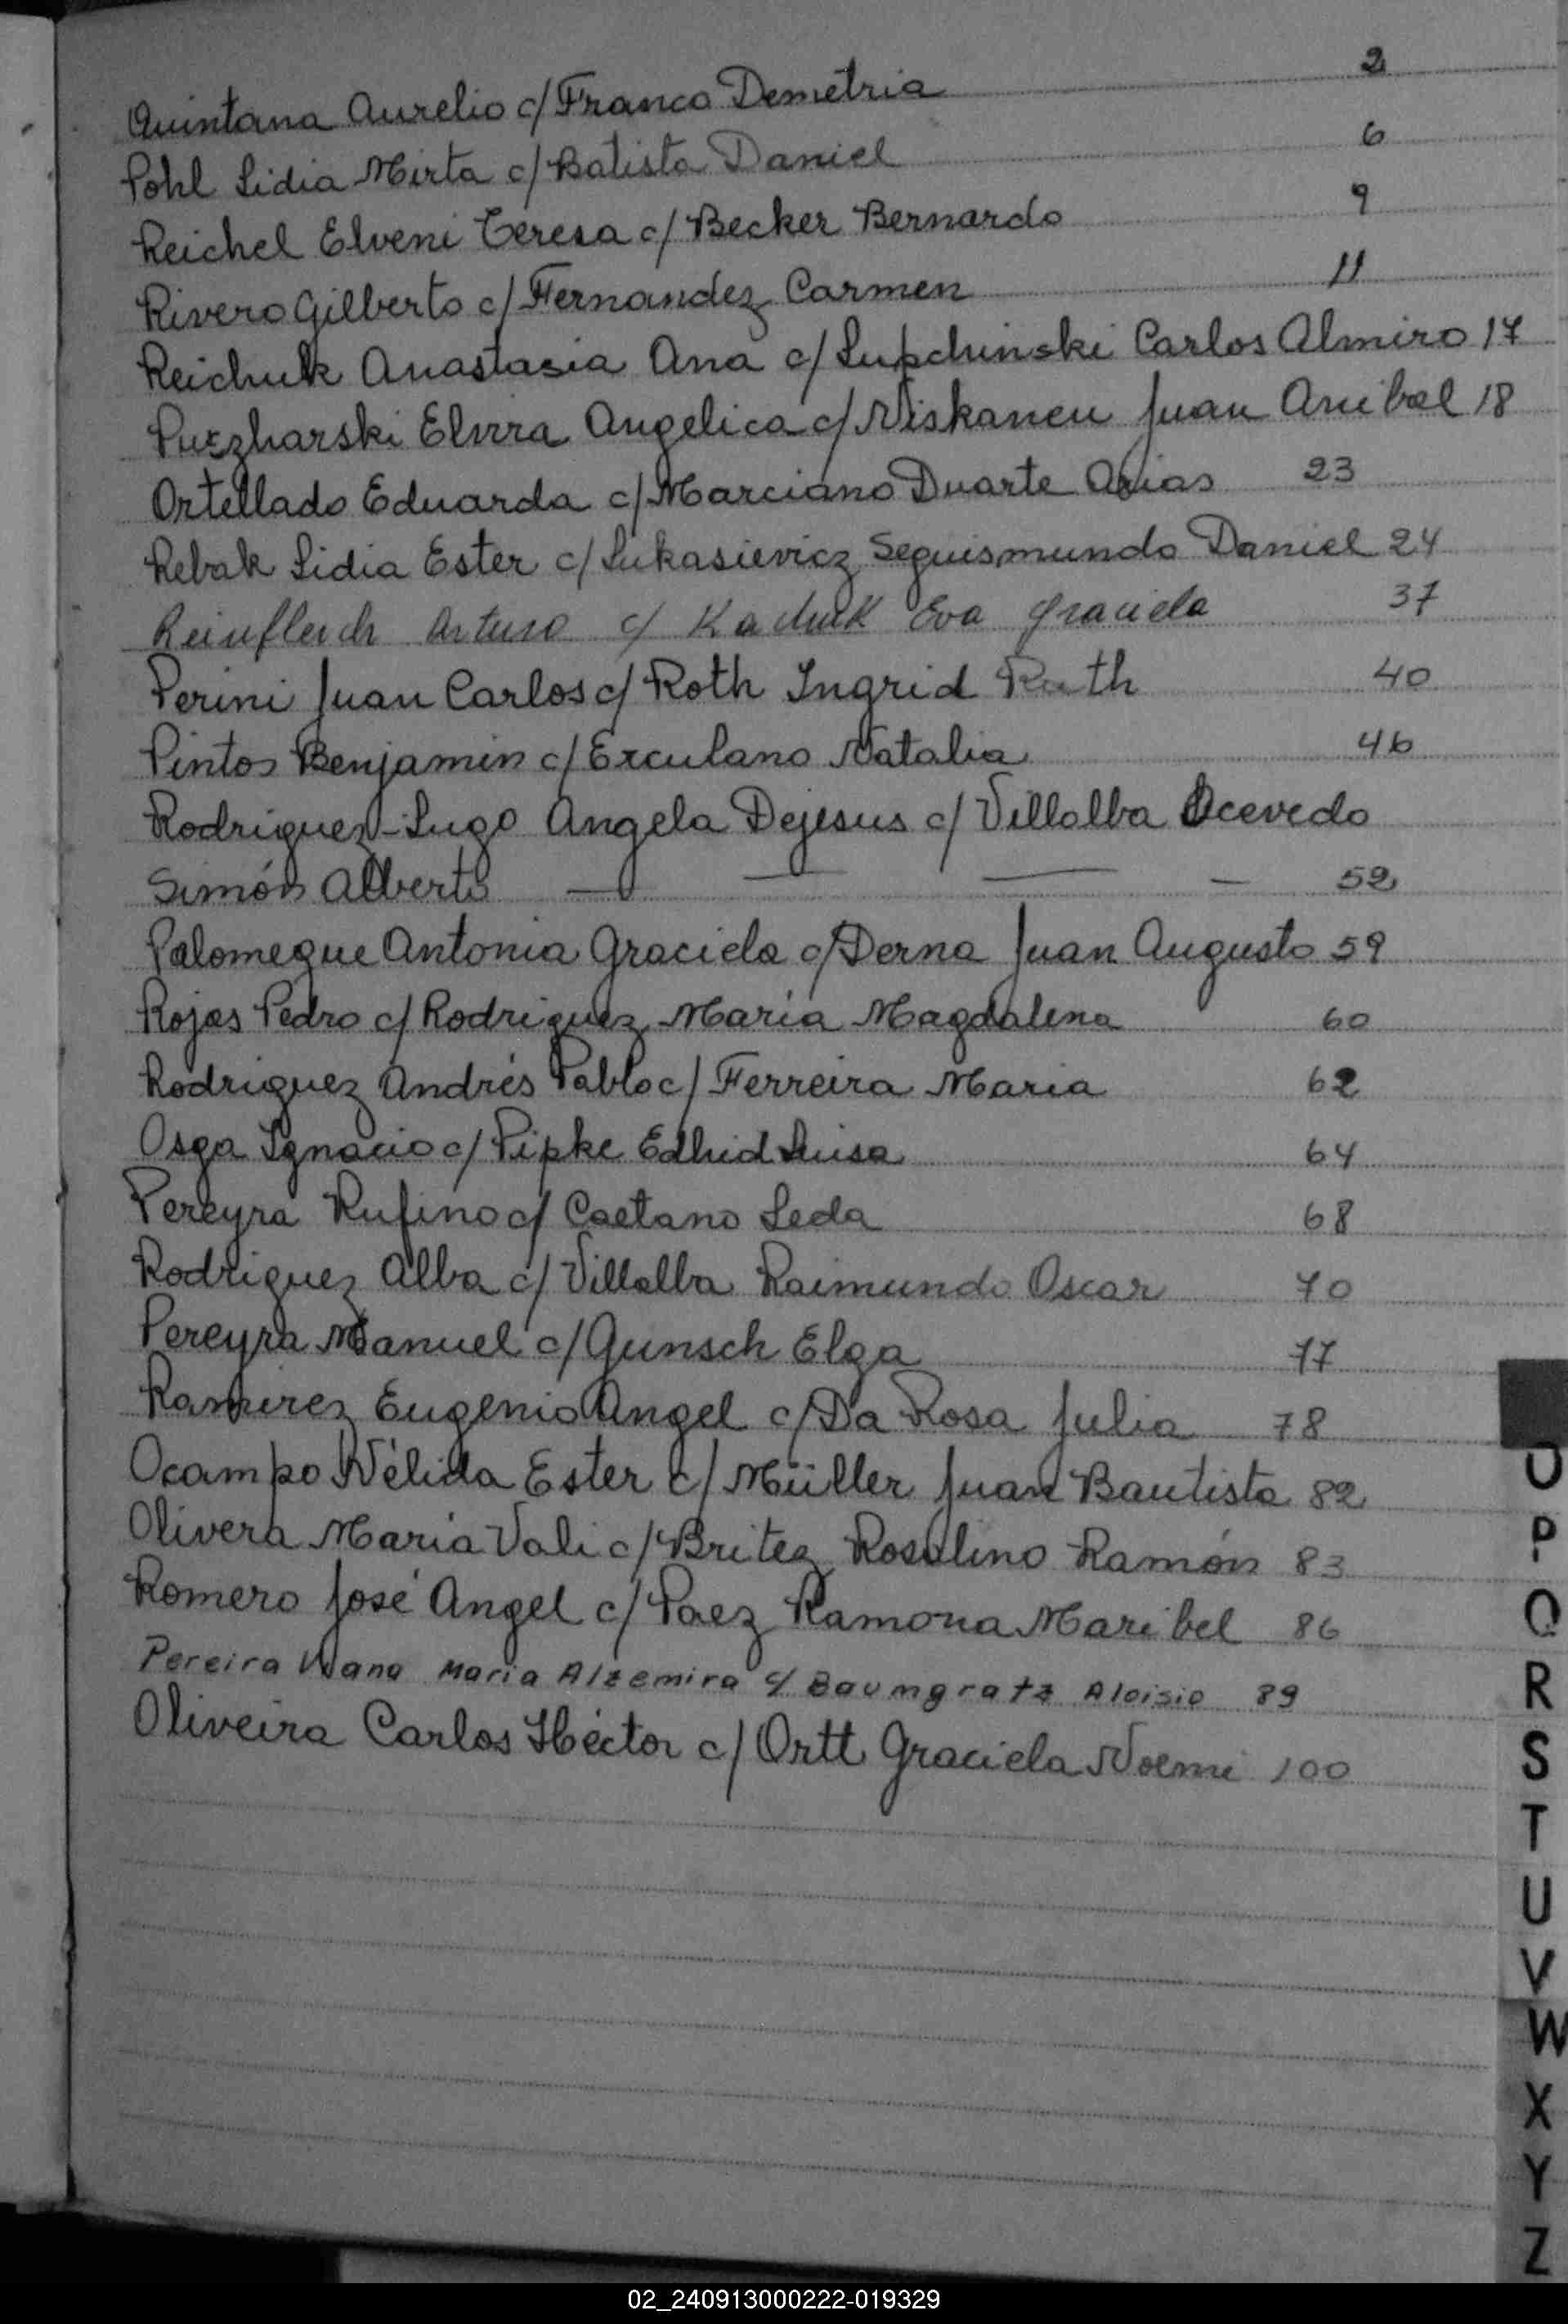 Quintana Aurelio c/ Franco Demetria 2
Pohl Lidia Mirta c/ Batista Daniel 6
Reichel Elveni Teresa c/ Becker Bernardo 9
Rivero Gilberto c/ Fernandez Carmen 11
Reichuk Anastasia Ana c/ Lupchinski Carlos Almiro 17
Puszharski Elvira Angelica c/ Niskaneu Juan Anibal 18
Ortellado Eduarda c/ Marciano Duarte Arias 23
Rebak Lidia Ester c/ Lukasievicz Seguismundo Daniel 24
Arturo c/ Kachuk Eva Graciela 37
Perini Juan Carlos c/ Roth Ingrid Ruth 40
Pintos Benjamin c/ Erculano Natalia 46
Rodriguez-Lugo Angela Dejesus c/ Villalba Acevedo
Simón Alberto — — — — 52
Palomeque Antonia Graciela c/ Derna Juan Augusto 59
Rojas Pedro c/ Rodriguez María Magdalena 60
Rodriguez Andrés Pablo c/ Ferreira Maria 62
Osga Ignacio c/ Pipke Edhid Luisa 64
Pereyra Rufino c/ Caetano Leda 68
Rodriguez Alba c/ Villalba Raimundo Oscar 70
Pereyra Manuel c/ Gunsch Elga 77
Ramirez Eugenio Angel c/ Da Rosa Julia 78
Ocampo Nélida Ester c/ Müller Juan Bautista 82
Olivera María Vali c/ Britez Rosalino Ramón 83
Romero José Angel c/ Paez Ramona Maribel 86
Pereira Viana Maria Alzemira c/ Baumgratz Aloisio 89
Oliveira Carlos Héctor c/ Ortt Graciela Noemi 100
O
P
Q
R
S
T
U
V
W
X
Y
Z
02_240913000222-019329